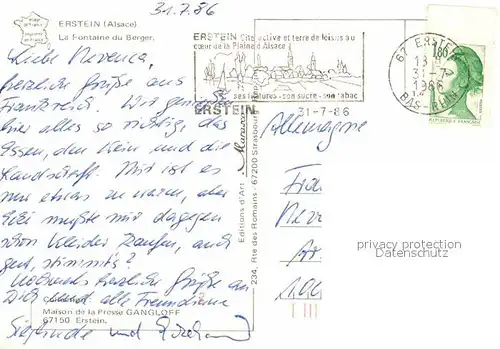 31.7.86
ERSTEIN (Alsace)
La Fontaine du Berger.
Liebe Nevenca,
herzliche Grüße aus
Frankreich. Wir genießen
hier alles so richtig, das
Essen, den Wein und die
Landschaft. Mir ist es
nur etwas zu warm, aber
mußte mir dagegen
schon Kleider kaufen, auch
gut, stimmt's?
Nochmals herzliche Grüße an
Dich und alle Freundinnen
Sieglinde und
Maison de la Presse GANGLOFF
67150 Erstein.
Editions d'Art
234, Rte des Romains - 67200 Strasbourg
ERSTEIN Cité active et terre de loisirs au
cœur de la Plaine d'Alsace
ses filatures - son sucre - son tabac
ERSTEIN
31-7-86
67 ERSTEIN
18 H
31-7-
1986
BAS-RHIN
1,80
Allemagne
privacy protection
Datenschutz